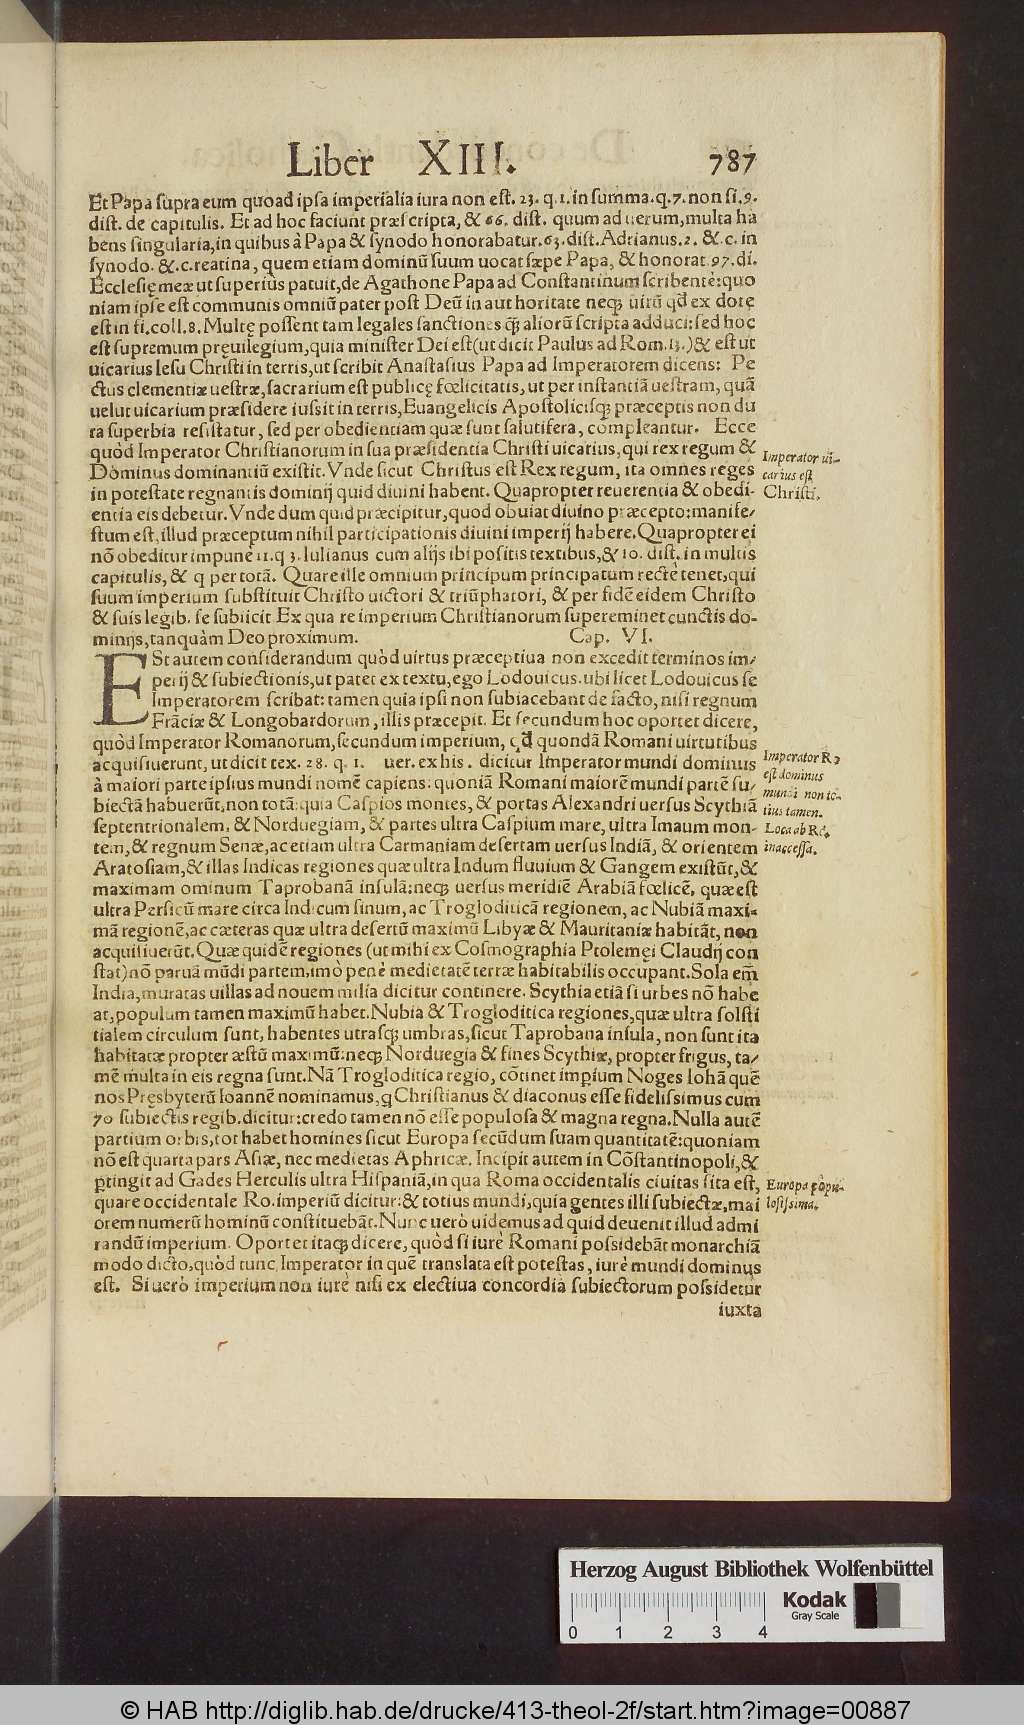 Liber XIII. 787
Et Papa supra eum quoad ipsa imperialia iura non est. 23. q. 1. in summa. q. 7. non si. 9.
dist. de capitulis. Et ad hoc faciunt præscripta, & 66. dist. quum ad uerum, multa ha
bens singularia, in quibus à Papa & synodo honorabatur. 63. dist. Adrianus. 2. & .c. in
synodo. & .c. reatina, quem etiam dominũ suum uocat sæpe Papa, & honorat 97. di.
Ecclesię meæ ut superiùs patuit, de Agathone Papa ad Constantinum scribente: quo
niam ipse est communis omniũ pater post Deũ in authoritate neqꝫ uirũ qđ ex dote
est in ti. coll. 8. Multę possent tam legales sanctiones ꝗ̃ aliorũ scripta adduci: sed hoc
est supremum pręuilegium, quia minister Dei est (ut dicit Paulus ad Rom. 13.) & est ut
uicarius Iesu Christi in terris, ut scribit Anastasius Papa ad Imperatorem dicens: Pe
ctus clementiæ uestræ, sacrarium est publicę fœlicitatis, ut per instantiã uestram, quã
uelut uicarium præsidere iussit in terris, Euangelicis Apostolicisqꝫ præceptis non du
ra superbia resistatur, sed per obedientiam quæ sunt salutifera, compleantur. Ecce
quòd Imperator Christianorum in sua præsidentia Christi uicarius, qui rex regum &
Dominus dominantiũ existit. Vnde sicut Christus est Rex regum, ita omnes reges
in potestate regnantis dominij quid diuini habent. Quapropter reuerentia & obedi-
entia eis debetur. Vnde dum quid præcipitur, quod obuiat diuino præcepto: manife-
stum est, illud præceptum nihil participationis diuini imperij habere. Quapropter ei
nõ obeditur impunè 11. q 3. Iulianus cum alijs ibi positis textibus, & 10. dist. in multis
capitulis, & q per totã. Quare ille omnium principum principatum rectè tenet, qui
suum imperium substituit Christo uictori & triũphatori, & per fidẽ eidem Christo
& suis legib. se subiicit. Ex qua re imperium Christianorum supereminet cunctis do-
minijs, tanquàm Deo proximum. Cap. VI.
Imperator ui-
carius est
Christi.
ESt autem considerandum quòd uirtus præceptiua non excedit terminos im-
perij & subiectionis, ut patet ex textu, ego Lodouicus. ubi licet Lodouicus se
Imperatorem scribat: tamen quia ipsi non subiacebant de facto, nisi regnum
Frãciæ & Longobardorum, illis præcepit. Et secundum hoc oportet dicere,
quòd Imperator Romanorum, secundum imperium, qđ quondã Romani uirtutibus
acquisiuerunt, ut dicit tex. 28. q. 1. uer. ex his. dicitur Imperator mundi dominus
à maiori parte ipsius mundi nomẽ capiens. quoniã Romani maiorẽ mundi partẽ su-
biectã habuerũt, non totã: quia Caspios montes, & portas Alexandri uersus Scythiã
septentrionalem, & Norduegiam, & partes ultra Caspium mare, ultra Imaum mon-
tem, & regnum Senæ, ac etiam ultra Carmaniam desertam uersus Indiã, & orientem
Aratosiam, & illas Indicas regiones quæ ultra Indum fluuium & Gangem existũt, &
maximam ominum Taprobanã insulã: neqꝫ uersus meridiẽ Arabiã fœlicẽ, quæ est
ultra Persicũ mare circa Indicum sinum, ac Trogloditicã regionem, ac Nubiã maxi-
mã regionẽ, ac cæteras quæ ultra desertũ maximũ Libyæ & Mauritaniæ habitãt, non
acquisiuerũt. Quæ quidẽ regiones (ut mihi ex Cosmographia Ptolemęi Claudij con
stat) nõ paruã mũdi partem, imò penè medietatẽ terræ habitabilis occupant. Sola em̃
India, muratas uillas ad nouem milia dicitur continere. Scythia etiã si urbes nõ habe
at, populum tamen maximũ habet. Nubia & Trogloditica regiones, quæ ultra solsti
tialem circulum sunt, habentes utrasqꝫ umbras, sicut Taprobana insula, non sunt ita
habitatæ propter æstũ maximũ: neqꝫ Norduegia & fines Scythiæ, propter frigus, ta-
mẽ multa in eis regna sunt. Nã Trogloditica regio, cõtinet imꝑium Noges Iohã quẽ
nos Pręsbyterũ Ioannẽ nominamus, ꝗ Christianus & diaconus esse fidelissimus cum
70 subiectis regib. dicitur: credo tamen nõ esse populosa & magna regna. Nulla autẽ
partium orbis, tot habet homines sicut Europa secũdum suam quantitatẽ: quoniam
nõ est quarta pars Asiæ, nec medietas Aphricæ. Incipit autem in Cõstantinopoli, &
ꝑtingit ad Gades Herculis ultra Hispaniã, in qua Roma occidentalis ciuitas sita est,
quare occidentale Ro. imperiũ dicitur: & totius mundi, quia gentes illi subiectæ, mai
orem numerũ hominũ constituebãt. Nunc uerò uidemus ad quid deuenit illud admi
randũ imperium. Oportet itaqꝫ dicere, quòd si iurè Romani possidebãt monarchiã
modo dicto, quòd tunc Imperator in quẽ translata est potestas, iurè mundi dominus
est. Si uerò imperium non iurè nisi ex electiua concordia subiectorum possidetur
iuxta
Imperator Ro
est dominus
mundi non to-
tius tamen.
Loca ab Ro.
inaccessa.
Europa popu-
losissima.
Herzog August Bibliothek Wolfenbüttel
0 1 2 3 4
Kodak
Gray Scale
© HAB http://diglib.hab.de/drucke/413-theol-2f/start.htm?image=00887